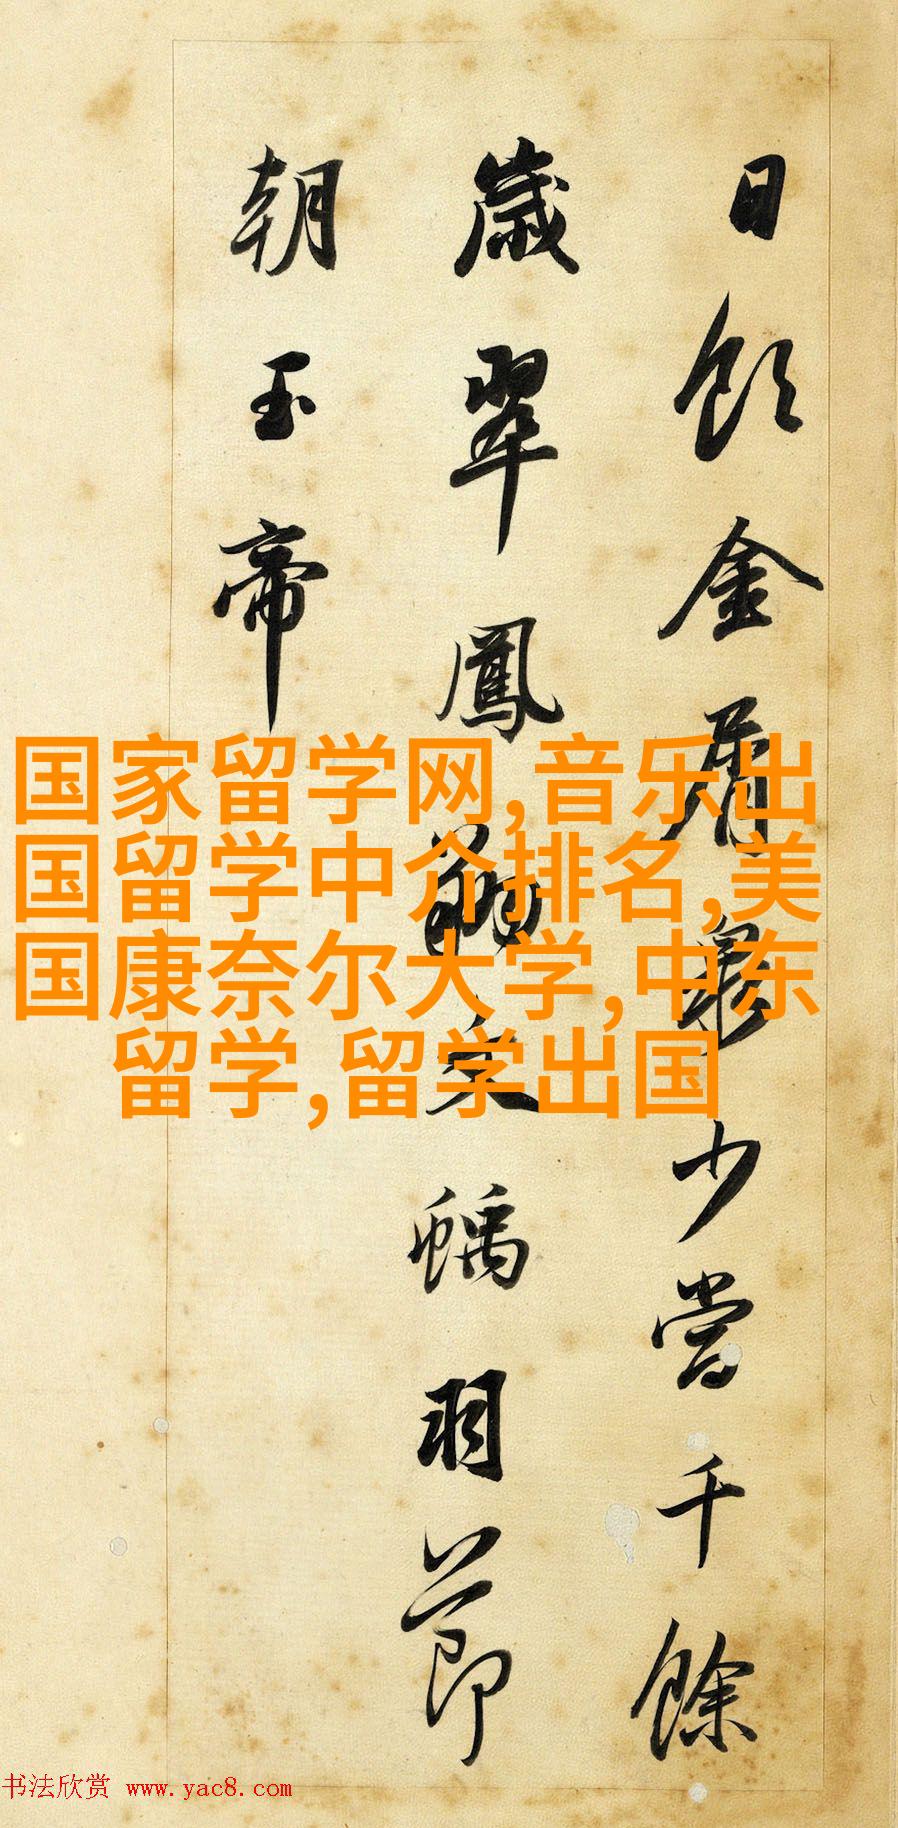 日飲金屑泉少當千餘
歲翠鳳文螭羽節
朝玉帝
国家留学网,音乐出
国留学中介排名,美
国康奈尔大学,中东
留学,留学出国
书法欣赏 www.yac8.com